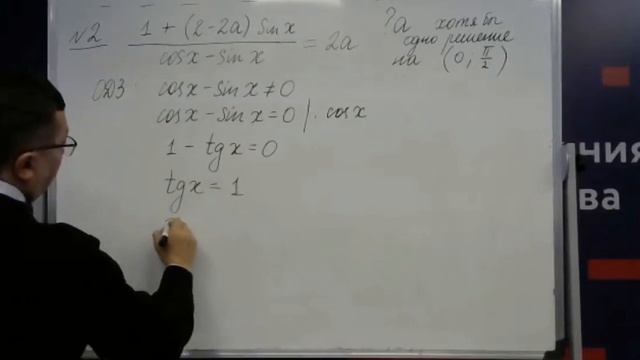 №2 1 + (2-2a) Sin x / cosx - sin x = 2a
?a хотя бы
одно решение
на (0; π/2)
ОДЗ: cosx - sin x ≠ 0
cosx - sin x = 0 | · cosx
1 - tg x = 0
tg x = 1
чия
ва